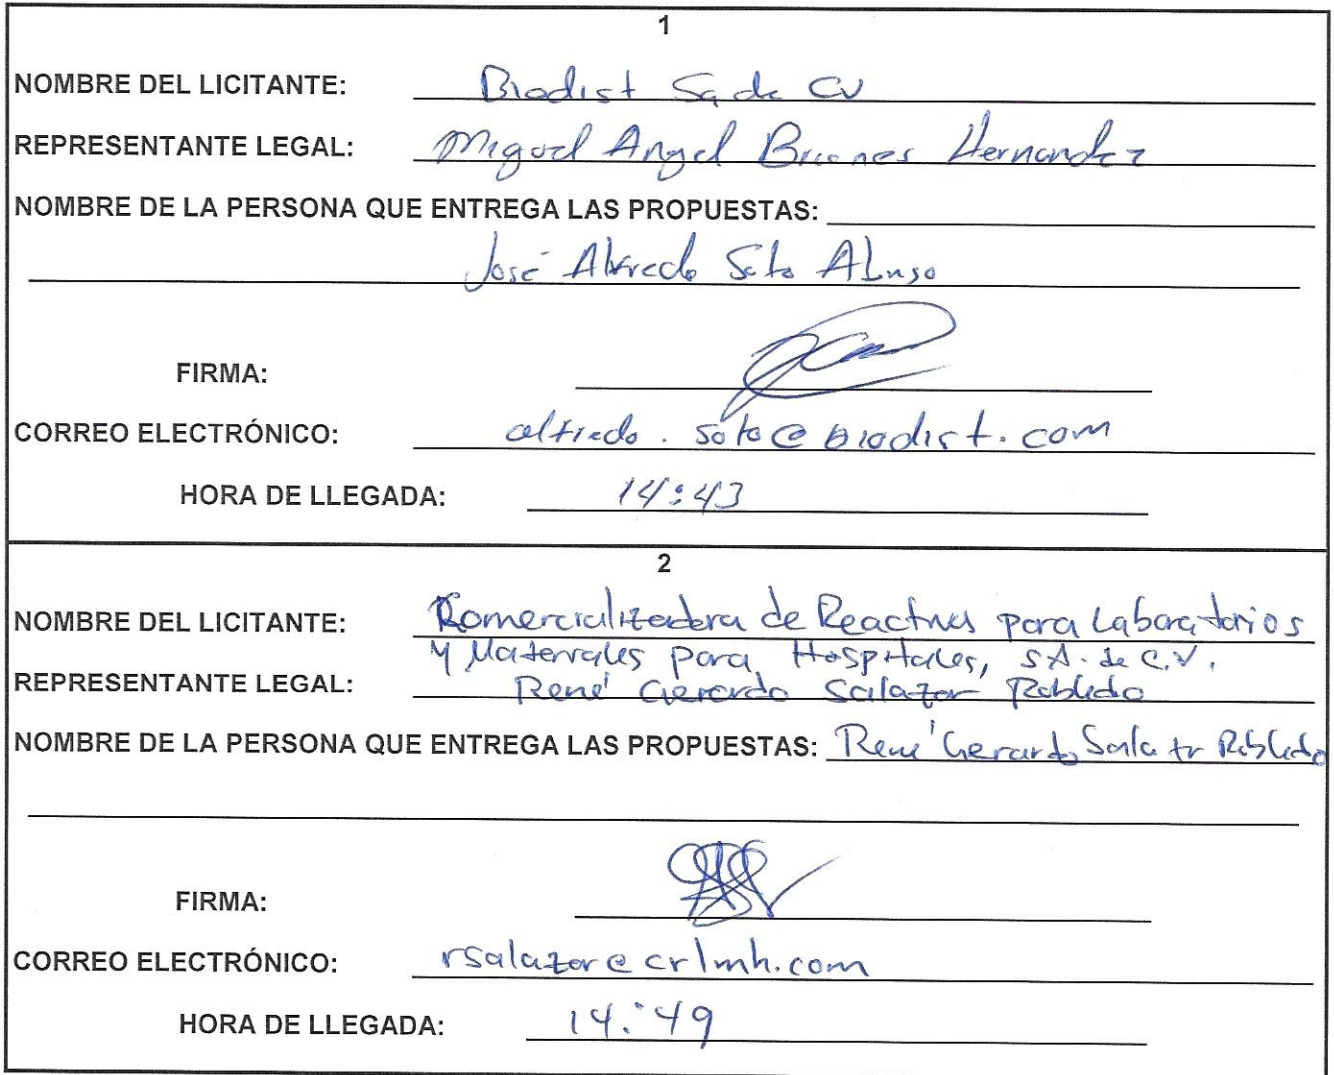 1
NOMBRE DEL LICITANTE: Biodist Sa de CV
REPRESENTANTE LEGAL: Miguel Angel Briones Hernandez
NOMBRE DE LA PERSONA QUE ENTREGA LAS PROPUESTAS:
José Alfredo Soto Alonso
FIRMA:
CORREO ELECTRÓNICO: alfredo.soto@biodist.com
HORA DE LLEGADA: 14:43
2
NOMBRE DEL LICITANTE: Comercializadora de Reactivos para Laboratorios
y Materiales para Hospitales, S.A. de C.V.
REPRESENTANTE LEGAL: René Gerardo Salazar Robledo
NOMBRE DE LA PERSONA QUE ENTREGA LAS PROPUESTAS: René Gerardo Salazar Robledo
FIRMA:
CORREO ELECTRÓNICO: rsalazar@crlmh.com
HORA DE LLEGADA: 14:49